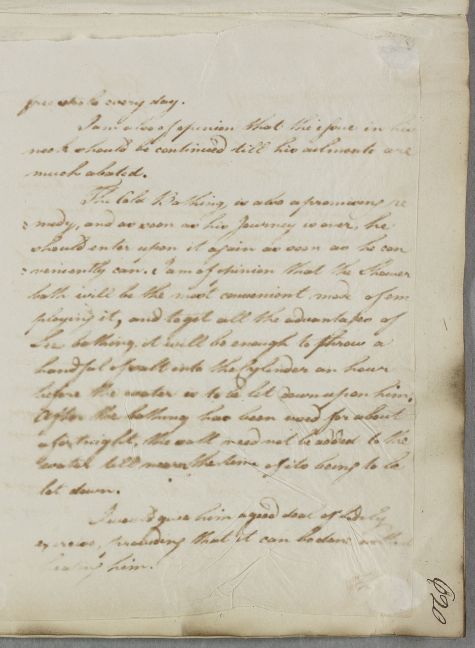 every day.
I am also of opinion that the issue in his
neck should be continued till his ailments are
much abated.
The Cold Bathing, is also a promising re
medy, and as soon as his Journey is over, he
should enter upon it again as soon as he can
veniently can. I am of opinion that the Shower
bath will be the most convenient mode of em
ploying it, and to get all the advantages of
Sea bathing, it will be enough to throw a
handful of salt into the Cylinder an hour
before the water is to be let down upon him.
After the bathing has been used for about
a fortnight, the salt need not be added to the
water till near the time of its being to be
let down.
I would give him a good deal of Bodily
exercise, providing that it can be done without
heating him.
690